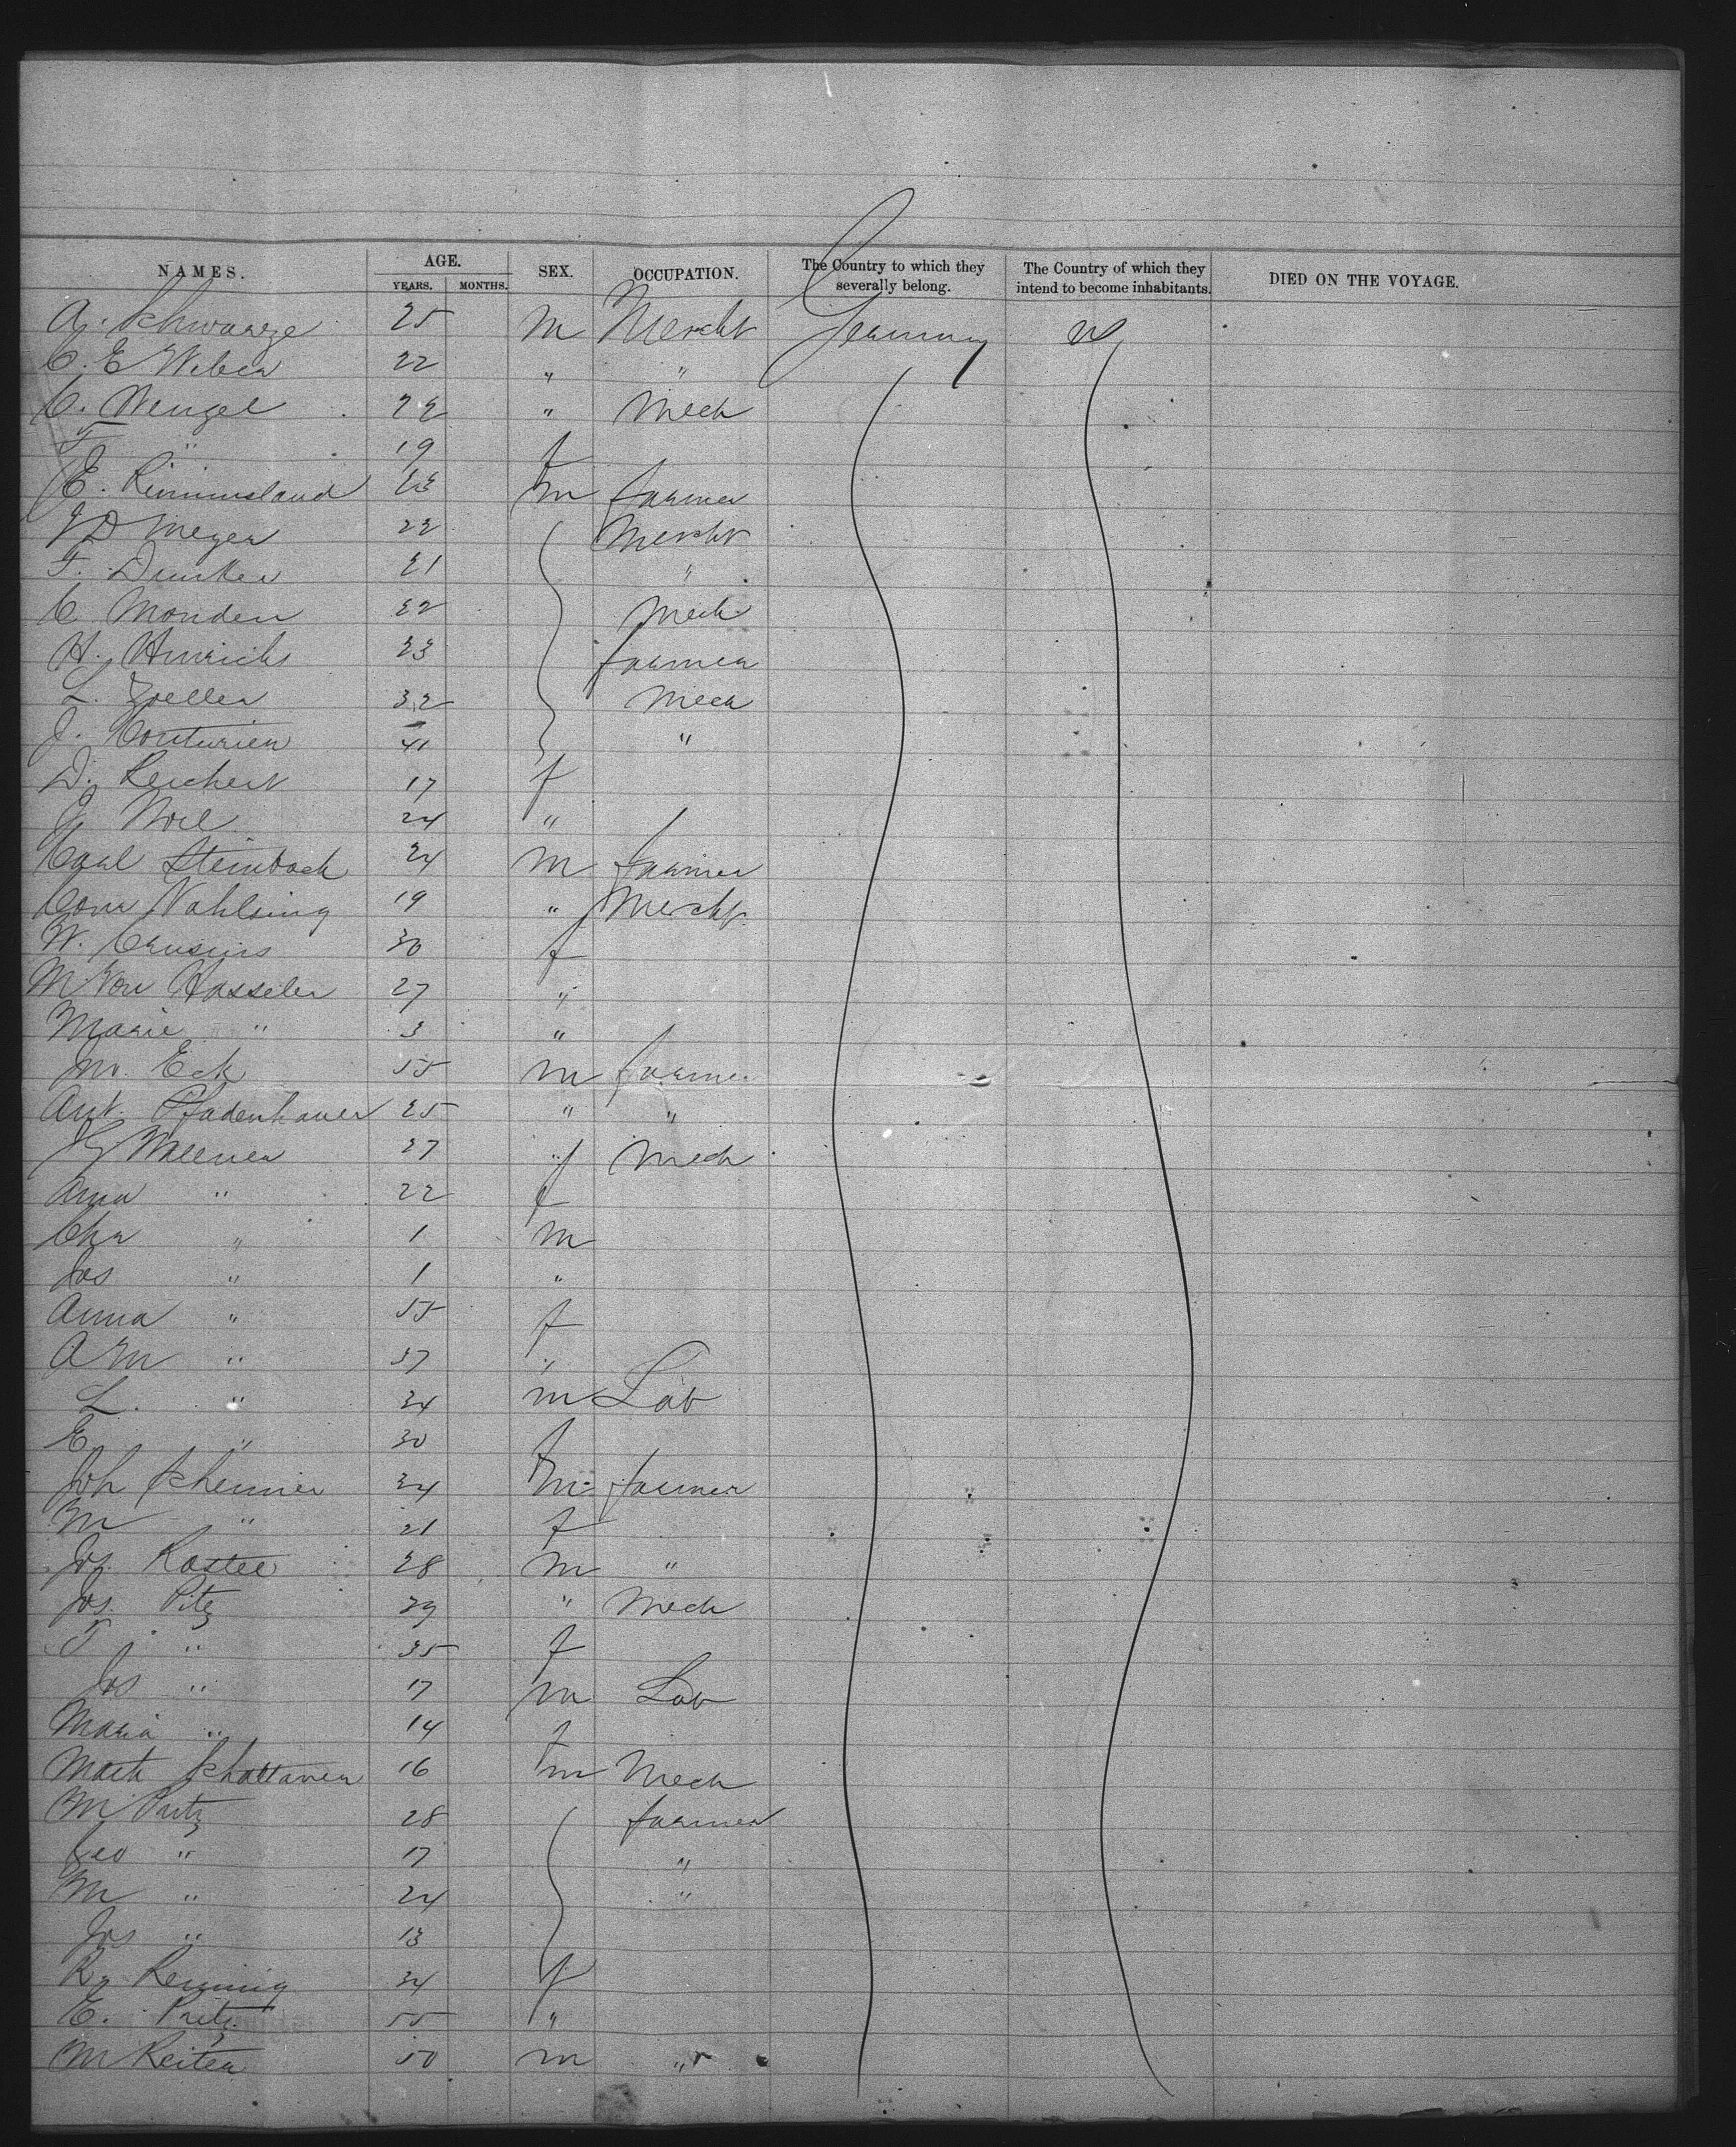 NAMES. AGE. SEX. OCCUPATION. The Country to which they severally belong. The Country of which they intend to become inhabitants. DIED ON THE VOYAGE.
YEARS. MONTHS.
A. Schwarze 25 m Mercht Germany
C. E Weber 22 " "
C. Wenzel 22 " Mech
F " 19 f
E. 23 m farmer
J D Meyer 22 Mercht
F. Dunker 21 "
C Monden 22 Mech
H. Hinrichs 23 farmer
L. Zoeller 32 Mech
J. Couturier 41 "
D. Reichert 17 f
J. Noll 24 "
Carl Steinbach 24 m farmer
Conr Nahlsing 19 " Mercht
W. Crusius 30 f
M Von Hasseler 27 "
Marie " 3 "
Jno. Eck 55 m farmer
Ant. Pfadenhauer 25 " "
27 Mech
Anna " 22 f
Chr " 1 m
Jos " 1 "
Anna " 55 f
A M " 37 "
L. " 34 m Lab
E " 30 f
Joh 34 m farmer
M " 21 f
Jos. Kastel 28 m "
Jos. Pitz 39 " Mech
T " 35 f
Jos " 17 m Lab
Maria " 14 f
Math 16 m Mech
M Pritz 28 farmer
Geo " 17 "
M " 24 "
Jos " 13
R. Renning 34 f
E. Pritz 55 "
M Reiter 50 m "